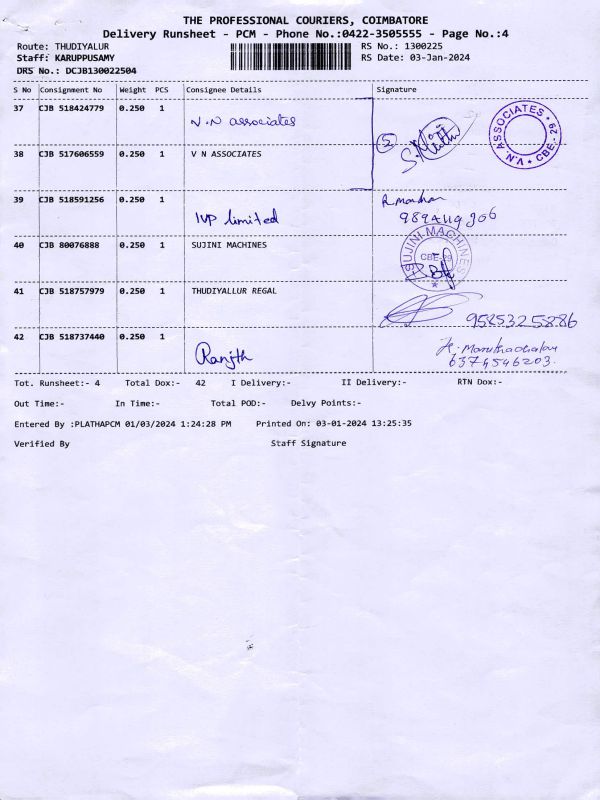 THE PROFESSIONAL COURIERS, COIMBATORE
Delivery Runsheet - PCM - Phone No.:0422-3505555 - Page No.:4
Route: THUDIYALUR RS No.: 1300225
Staff: KARUPPUSAMY RS Date: 03-Jan-2024
DRS No.: DCJB130022504
S No Consignment No Weight PCS Consignee Details Signature
37 CJB 518424779 0.250 1 V.N associates
V.N. ASSOCIATES * CBE-29 *
38 CJB 517606559 0.250 1 V N ASSOCIATES
39 CJB 518591256 0.250 1 IVP limited
40 CJB 80076888 0.250 1 SUJINI MACHINES
SUJINI MACHINES CBE-29
41 CJB 518757979 0.250 1 THUDIYALLUR REGAL 9585325886
42 CJB 518737440 0.250 1 Ranjith
6374546203
Tot. Runsheet:- 4 Total Dox:- 42 I Delivery:- II Delivery:- RTN Dox:-
Out Time:- In Time:- Total POD:- Delvy Points:-
Entered By :PLATHAPCM 01/03/2024 1:24:28 PM Printed On: 03-01-2024 13:25:35
Verified By Staff Signature